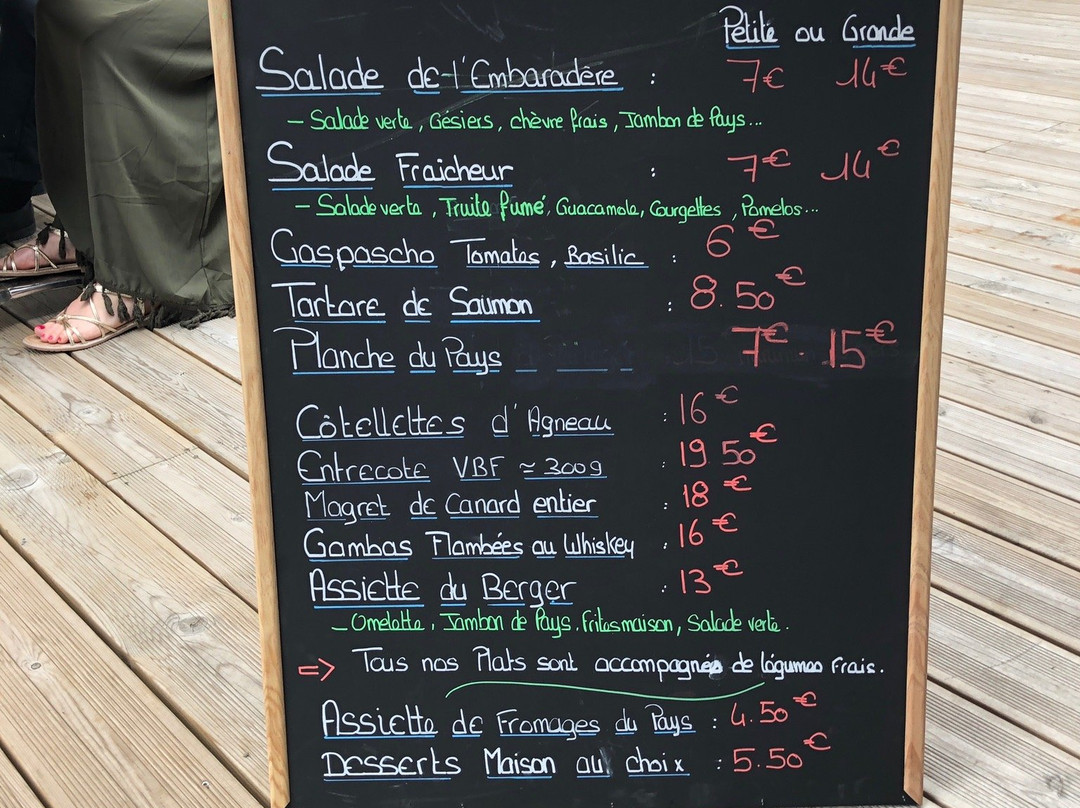 Petite ou Grande
Salade de l'Embaradère : 7€ 14€
- Salade verte, Gésiers, chèvre frais, Jambon de Pays...
Salade Fraicheur : 7€ 14€
- Salade verte, Truite fumé, Guacamole, Courgettes, Pomelos...
Gaspascho Tomates, Basilic : 6€
Tartare de Saumon : 8.50€
Planche du Pays 7€ - 15€
Côtellettes d'Agneau : 16€
Entrecote VBF ≃ 300g : 19.50€
Magret de Canard entier : 18€
Gambas Flambées au Whiskey : 16€
Assiette du Berger : 13€
- Omelette, Jambon de Pays, frites maison, Salade verte.
=> Tous nos Plats sont accompagnés de légumes frais.
Assiette de Fromages du Pays : 4.50€
Desserts Maison au choix : 5.50€